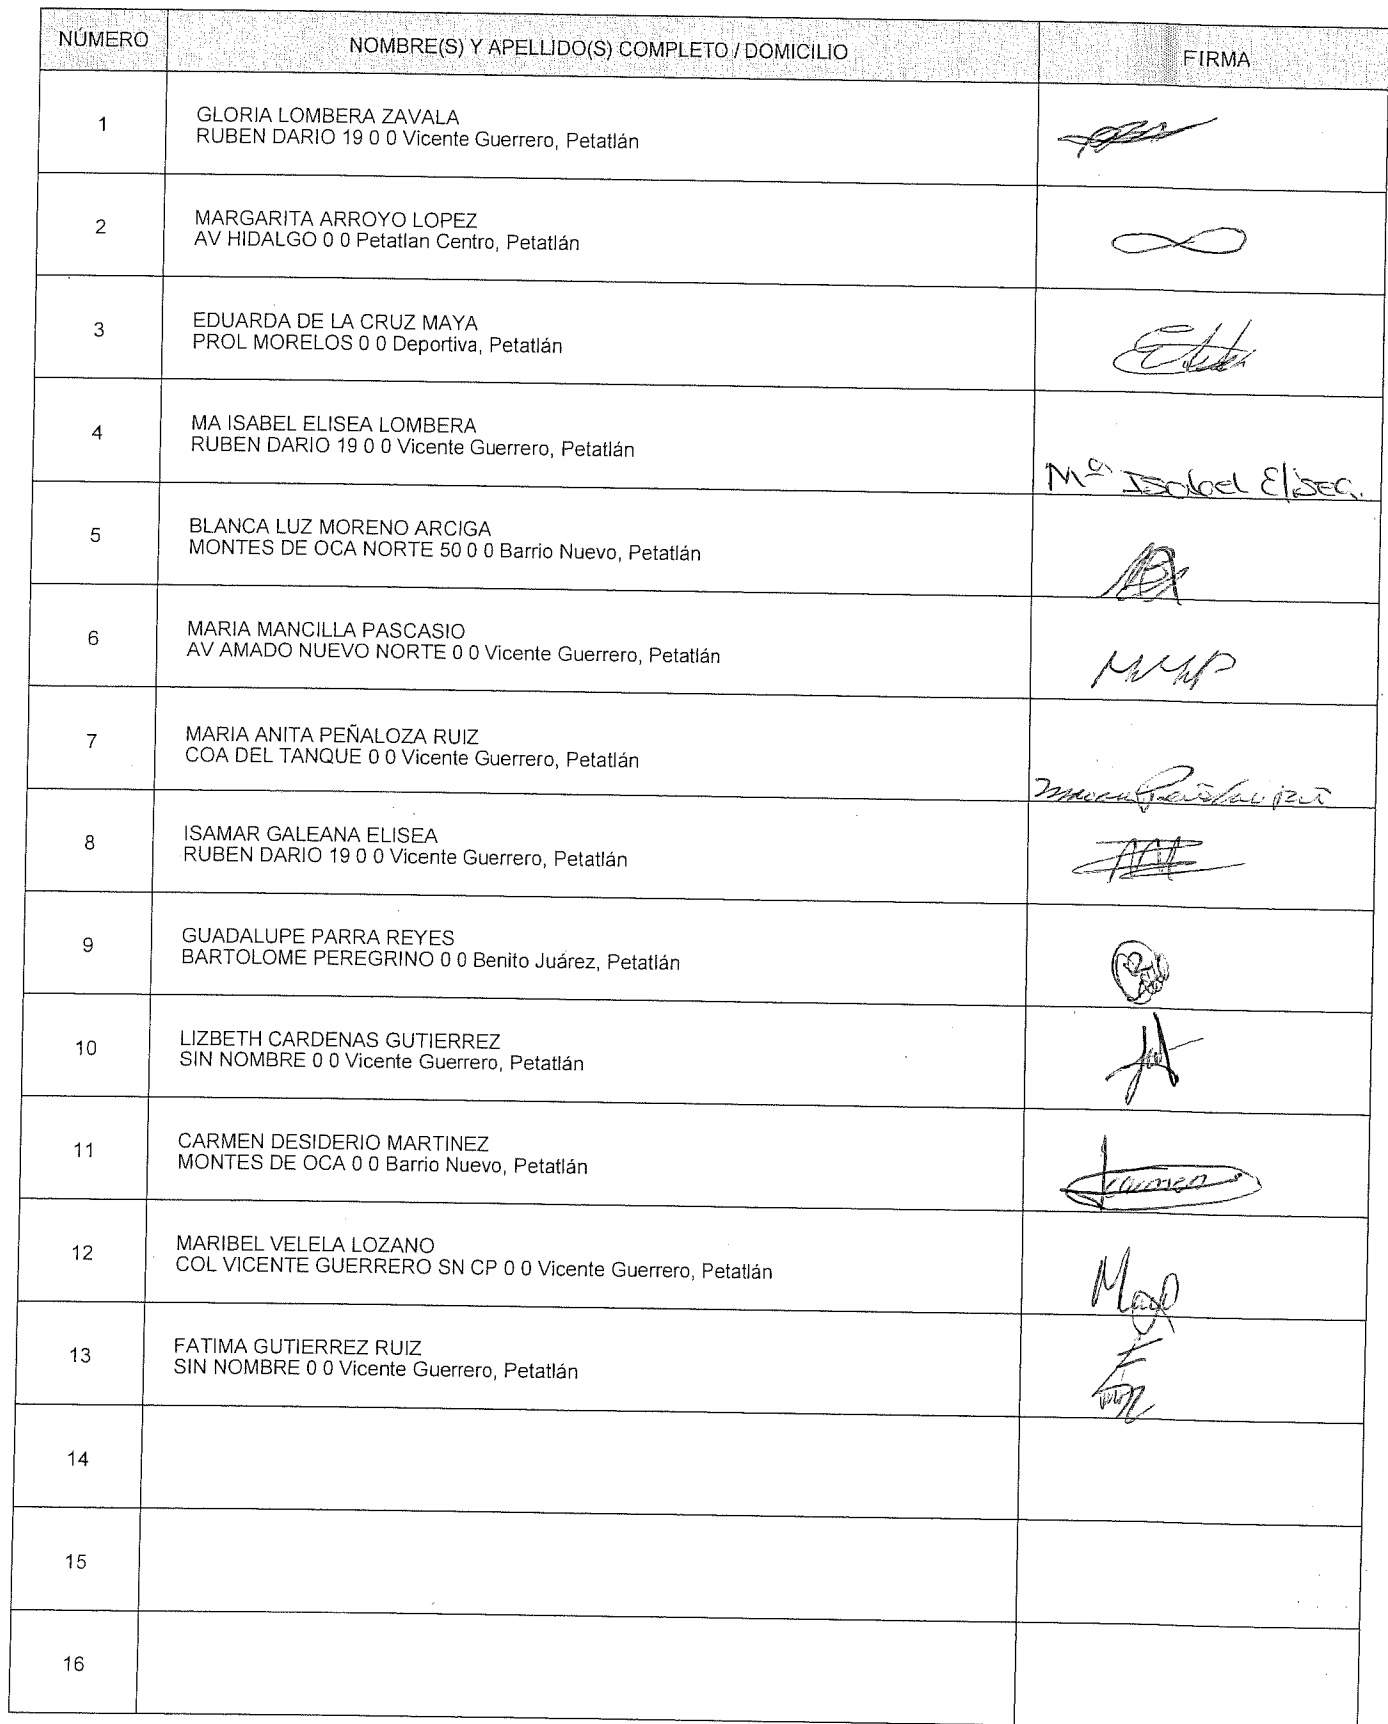 NÚMERO NOMBRE(S) Y APELLIDO(S) COMPLETO / DOMICILIO FIRMA
1 GLORIA LOMBERA ZAVALA
RUBEN DARIO 19 0 0 Vicente Guerrero, Petatlán
2 MARGARITA ARROYO LOPEZ
AV HIDALGO 0 0 Petatlan Centro, Petatlán
3 EDUARDA DE LA CRUZ MAYA
PROL MORELOS 0 0 Deportiva, Petatlán
4 MA ISABEL ELISEA LOMBERA
RUBEN DARIO 19 0 0 Vicente Guerrero, Petatlán
Mª Isabel Elisea.
5 BLANCA LUZ MORENO ARCIGA
MONTES DE OCA NORTE 50 0 0 Barrio Nuevo, Petatlán
6 MARIA MANCILLA PASCASIO
AV AMADO NUEVO NORTE 0 0 Vicente Guerrero, Petatlán
MMP
7 MARIA ANITA PEÑALOZA RUIZ
COA DEL TANQUE 0 0 Vicente Guerrero, Petatlán
8 ISAMAR GALEANA ELISEA
RUBEN DARIO 19 0 0 Vicente Guerrero, Petatlán
9 GUADALUPE PARRA REYES
BARTOLOME PEREGRINO 0 0 Benito Juárez, Petatlán
10 LIZBETH CARDENAS GUTIERREZ
SIN NOMBRE 0 0 Vicente Guerrero, Petatlán
11 CARMEN DESIDERIO MARTINEZ
MONTES DE OCA 0 0 Barrio Nuevo, Petatlán
Carmen
12 MARIBEL VELELA LOZANO
COL VICENTE GUERRERO SN CP 0 0 Vicente Guerrero, Petatlán
13 FATIMA GUTIERREZ RUIZ
SIN NOMBRE 0 0 Vicente Guerrero, Petatlán
14
15
16